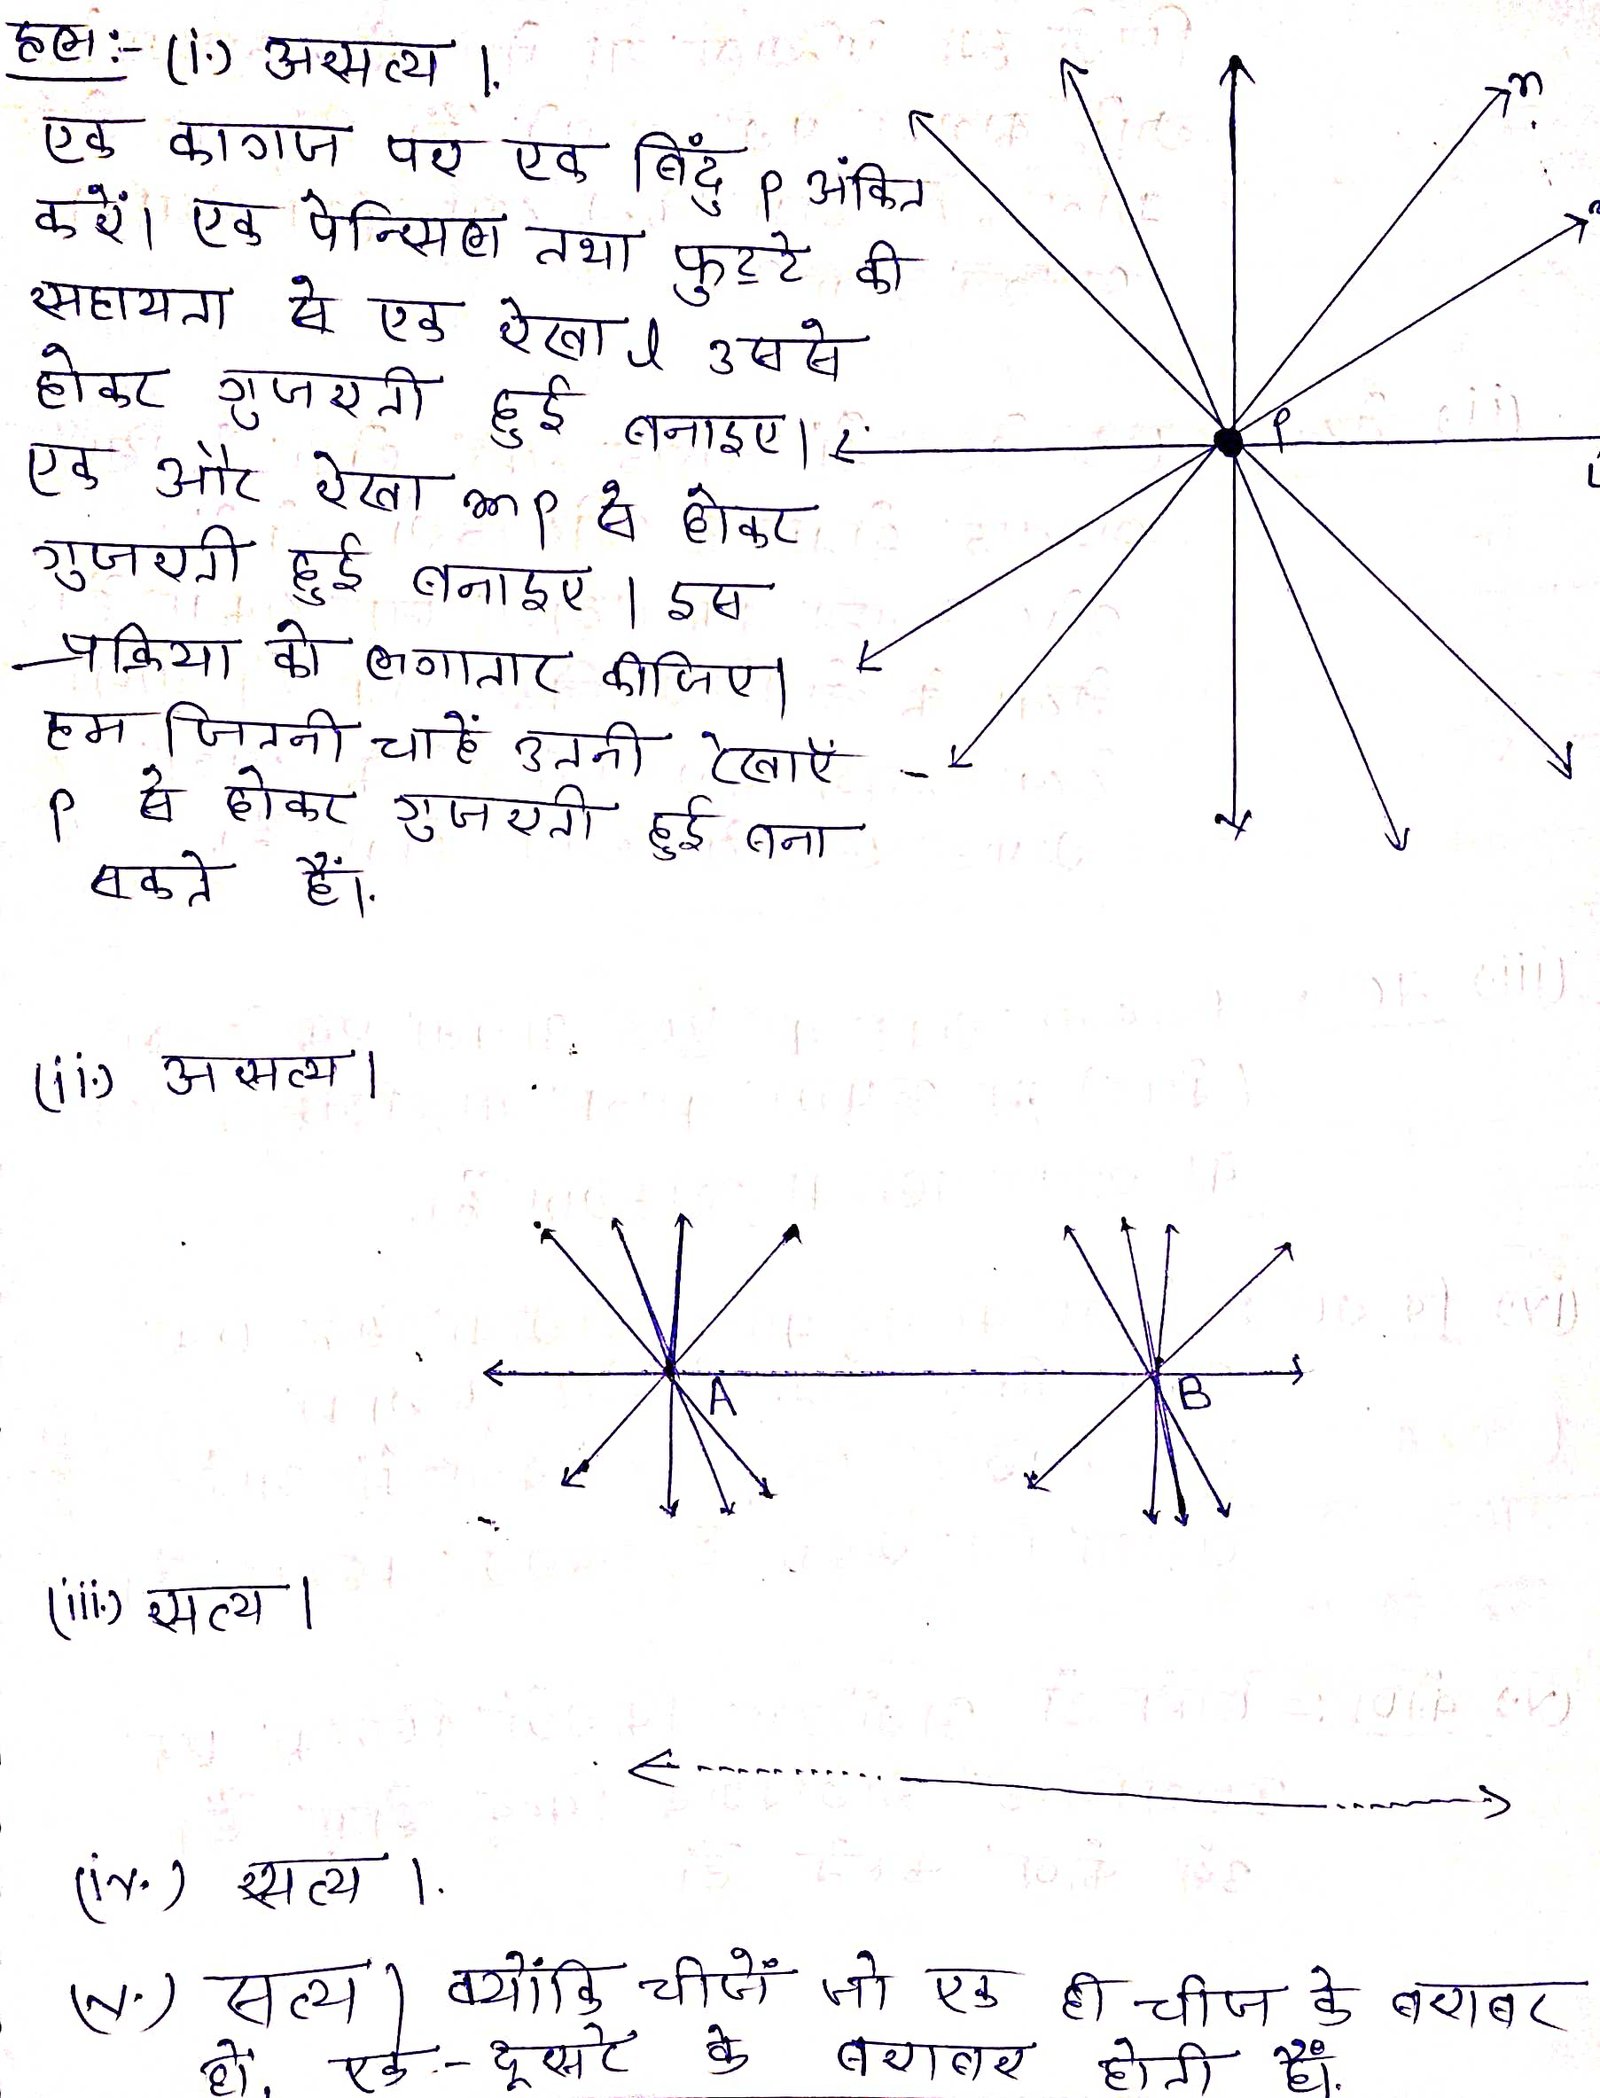 हल:- (i.) असत्य ।
एक कागज पर एक बिंदु P अंकित
करें। एक पेन्सिल तथा फुट्टे की
सहायता से एक रेखा l उससे
होकर गुजरती हुई बनाइए।
एक और रेखा m P से होकर
गुजरती हुई बनाइए । इस
प्रक्रिया को लगातार कीजिए।
हम जितनी चाहें उतनी रेखाएँ
P से होकर गुजरती हुई बना
सकते हैं।
n
P
(ii.) असत्य ।
A
B
(iii.) सत्य ।
(iv.) सत्य ।
(v.) सत्य । क्योंकि चीजें जो एक ही चीज के बराबर
हों, एक-दूसरे के बराबर होती हैं।